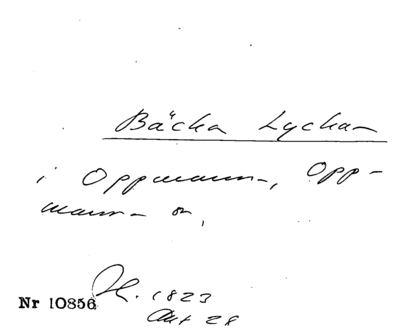 Bäcka Lyckan
i Oppmanna, Opp-
manna sn,
Nr 10856
H. 1823
Akt 28